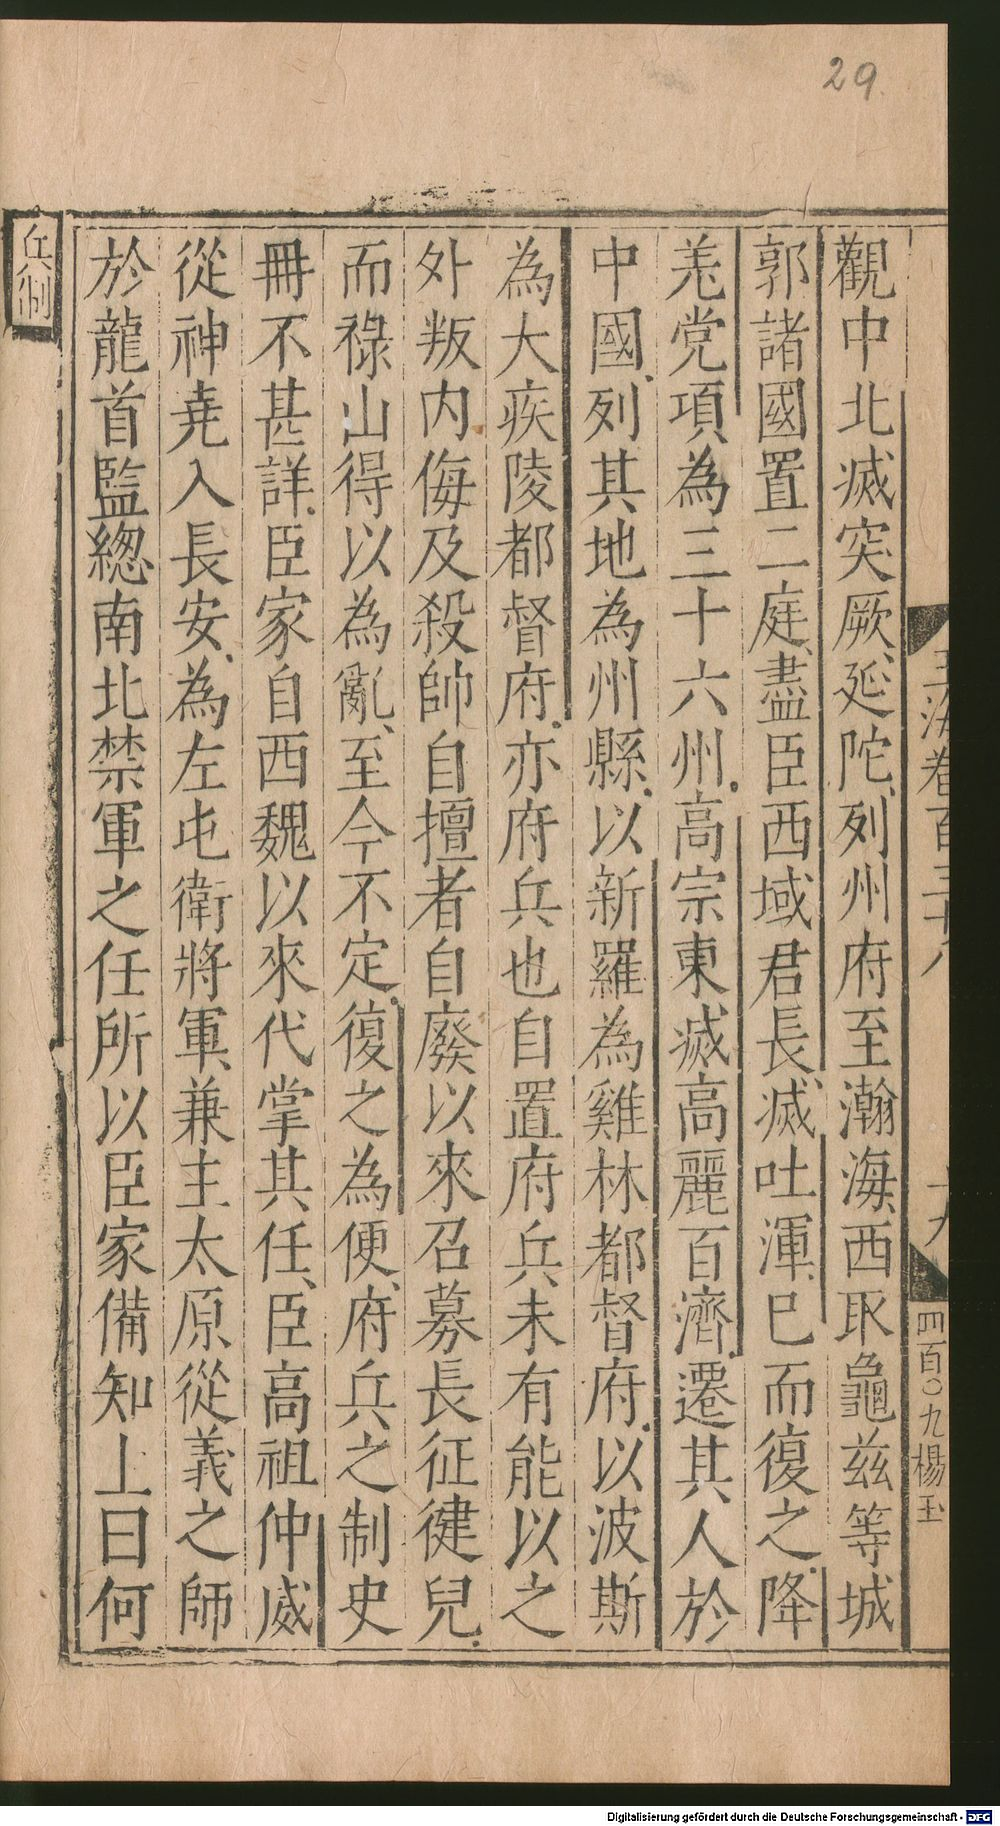 29
觀中北滅突厥延陀列州府至瀚海西取龜兹等城
郭諸國置二庭盡臣西域君長滅吐渾已而復之降
羗党項為三十六州高宗東滅高麗百濟遷其人於
中國列其地為州縣以新羅為雞林都督府以波斯
為大疾陵都督府亦府兵也自置府兵未有能以之
外叛内侮及殺帥自擅者自廢以來召募長征健兒
而祿山得以為亂至今不定復之為便府兵之制史
冊不甚詳臣家自西魏以來代掌其任臣高祖仲威
從神堯入長安為左屯衛將軍兼主太原從義之師
於龍首監緫南北禁軍之任所以臣家備知上曰何
兵制
玉海卷百三十八
十九
四百〇九楊玉
Digitalisierung gefördert durch die Deutsche Forschungsgemeinschaft - DFG